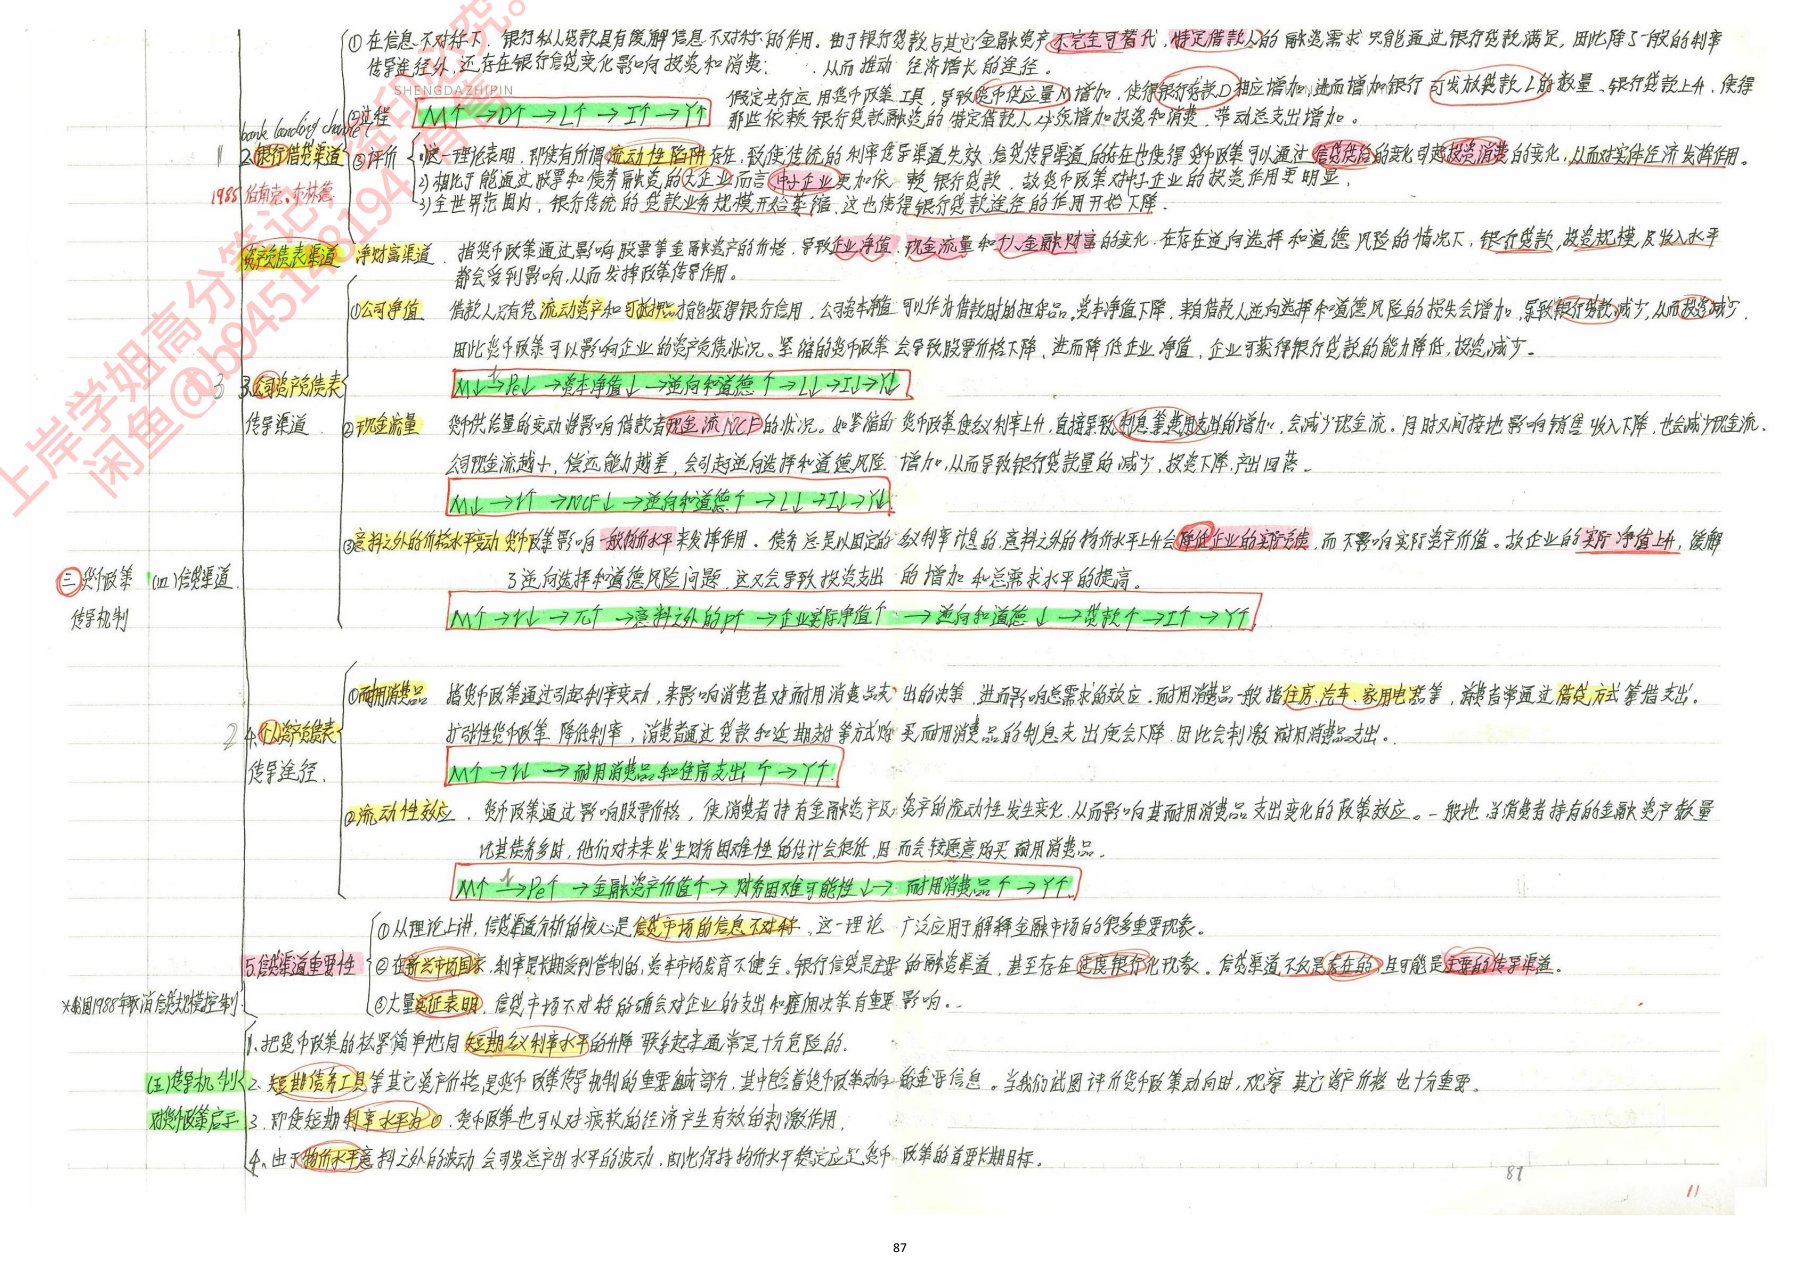 ①在信息不对称下，银行私人贷款具有缓解信息不对称的作用。由于银行贷款与其它金融资产不完全可替代，特定借款人的融资需求只能通过银行贷款满足，因此除了一般的利率
传导途径外，还存在银行信贷变化影响投资和消费，从而推动经济增长的途径。
SHENGDAZHIPIN
②过程 M↑→D↑→L↑→I↑→Y↑
假定央行运用货币政策工具，导致货币供应量M增加，使得银行存款D相应增加，进而增加银行可发放贷款L的数量、银行贷款上升，使得
那些依赖银行贷款融资的特定借款人必须增加投资和消费，带动总支出增加。
bank lending channel
1 2.银行借贷渠道
1988 伯南克、布林德
③评价 1)这一理论表明，即使有所谓流动性陷阱存在，致使传统的利率传导渠道失效，信贷传导渠道的存在也使得货币政策可以通过信贷供给的变化引起投资消费的变化，从而对实体经济发挥作用。
2)相比于能通过股票和债券融资的大企业而言，中小企业更加依赖银行贷款，故货币政策对中小企业的投资作用更明显，
3)全世界范围内，银行传统的贷款业务规模开始萎缩，这也使得银行贷款途径的作用开始下降.
资产负债表渠道 净财富渠道 指货币政策通过影响股票等金融资产的价格，导致企业净值、现金流量和个人金融财富的变化.在存在逆向选择和道德风险的情况下，银行贷款、投资规模及收入水平
都会受到影响，从而发挥政策传导作用。
①公司净值 借款人只有凭流动资产和可抵押品才能获得银行信用，公司资本净值可以作为借款时的担保品。资本净值下降，来自借款人逆向选择和道德风险的损失会增加，导致银行贷款减少，从而投资减少，
因此货币政策可以影响企业的资产负债状况。紧缩的货币政策会导致股票价格下降，进而降低企业净值，企业可获得银行贷款的能力降低，投资减少。
3 3.公司资产负债表
传导渠道
M↓→Pe↓→资本净值↓→逆向和道德↑→L↓→I↓→Y↓
②现金流量 货币供给量的变动将影响借款者现金流NCF的状况。如紧缩的货币政策使名义利率上升，直接导致利息等费用支出的增加，会减少现金流。同时又间接地影响销售收入下降，也会减少现金流、
公司现金流越少，偿还能力越差，会引起逆向选择和道德风险增加，从而导致银行贷款量的减少，投资下降，产出回落。
M↓→r↑→NCF↓→逆向和道德↑→L↓→I↓→Y↓
③意料之外的价格水平变动 货币政策影响一般物价水平来发挥作用。债务总是以固定的名义利率计息的，意料之外的物价水平上升会降低企业的实际负债，而不影响实际资产价值。故企业的实际净值上升，缓解
了逆向选择和道德风险问题，这又会导致投资支出的增加和总需求水平的提高。
三、货币政策
传导机制
(四)信贷渠道
M↑→r↓→π↑→意料之外的P↑→企业实际净值↑→逆向和道德↓→贷款↑→I↑→Y↑
①耐用消费品 指货币政策通过引起利率变动，来影响消费者对耐用消费品支出的决策，进而影响总需求的效应。耐用消费品一般指住房、汽车、家用电器等，消费者常通过借贷方式筹措支出。
2 4.个人资产负债表
传导途径.
扩张性货币政策降低利率，消费者通过贷款和延期支付等方式购买耐用消费品的利息支出便会下降.因此会刺激耐用消费品支出。
M↑→r↓→耐用消费品和住房支出↑→Y↑
②流动性效应 货币政策通过影响股票价格，使消费者持有金融资产及资产的流动性发生变化，从而影响其耐用消费品支出变化的政策效应。一般地，当消费者持有的金融资产数量
比其债务多时，他们对未来发生财务困难性的估计会很低，因而会较愿意购买耐用消费品。
M↑→Pe↑→金融资产价值↑→财务困难可能性↓→耐用消费品↑→Y↑
5.信贷渠道重要性
①从理论上讲，信贷渠道分析的核心是信贷市场的信息不对称，这一理论广泛应用于解释金融市场的很多重要现象。
②在新兴市场国家，利率是长期受到管制的，资本市场发育不健全，银行信贷是主要的融资渠道，甚至存在过度银行化现象。信贷渠道不仅是存在的，且可能是主要的传导渠道。
③大量实证表明，信贷市场不对称的确会对企业的支出和雇佣决策有重要影响。
*我国1988年取消信贷规模控制.
(五)传导机制
对货币政策启示
1.把货币政策的松紧简单地同短期名义利率水平的升降联系起来通常是十分危险的.
2.短期债务工具等其它资产价格是货币政策传导机制的重要组成部分，其中包含着货币政策动向的重要信息。当我们试图评价货币政策动向时，观察其它资产价格也十分重要.
3.即使短期利率水平为0.货币政策也可以对疲软的经济产生有效的刺激作用.
4.由于物价水平意料之外的波动会引发总产出水平的波动，因此保持物价水平稳定应是货币政策的首要长期目标。
87
11
87
上岸学姐高分笔记，盗印必究。
闲鱼@b94514819410